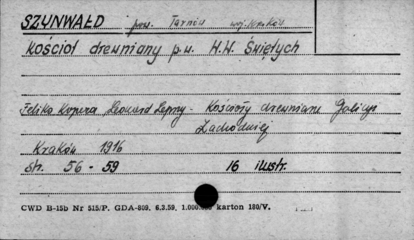 SZYNWAŁD pow. Tarnów woj. krak.
kościół drewniany p.w. W.W. Świętych
Feliks Kopera Leonard Lepszy - Kościoły drewniane Galicji
Zachodniej
Kraków 1916
str. 56 - 59 16 ilustr.
CWD 18-15b Nr 515/P. GDA-809. 6.3.59. karton 180/V.